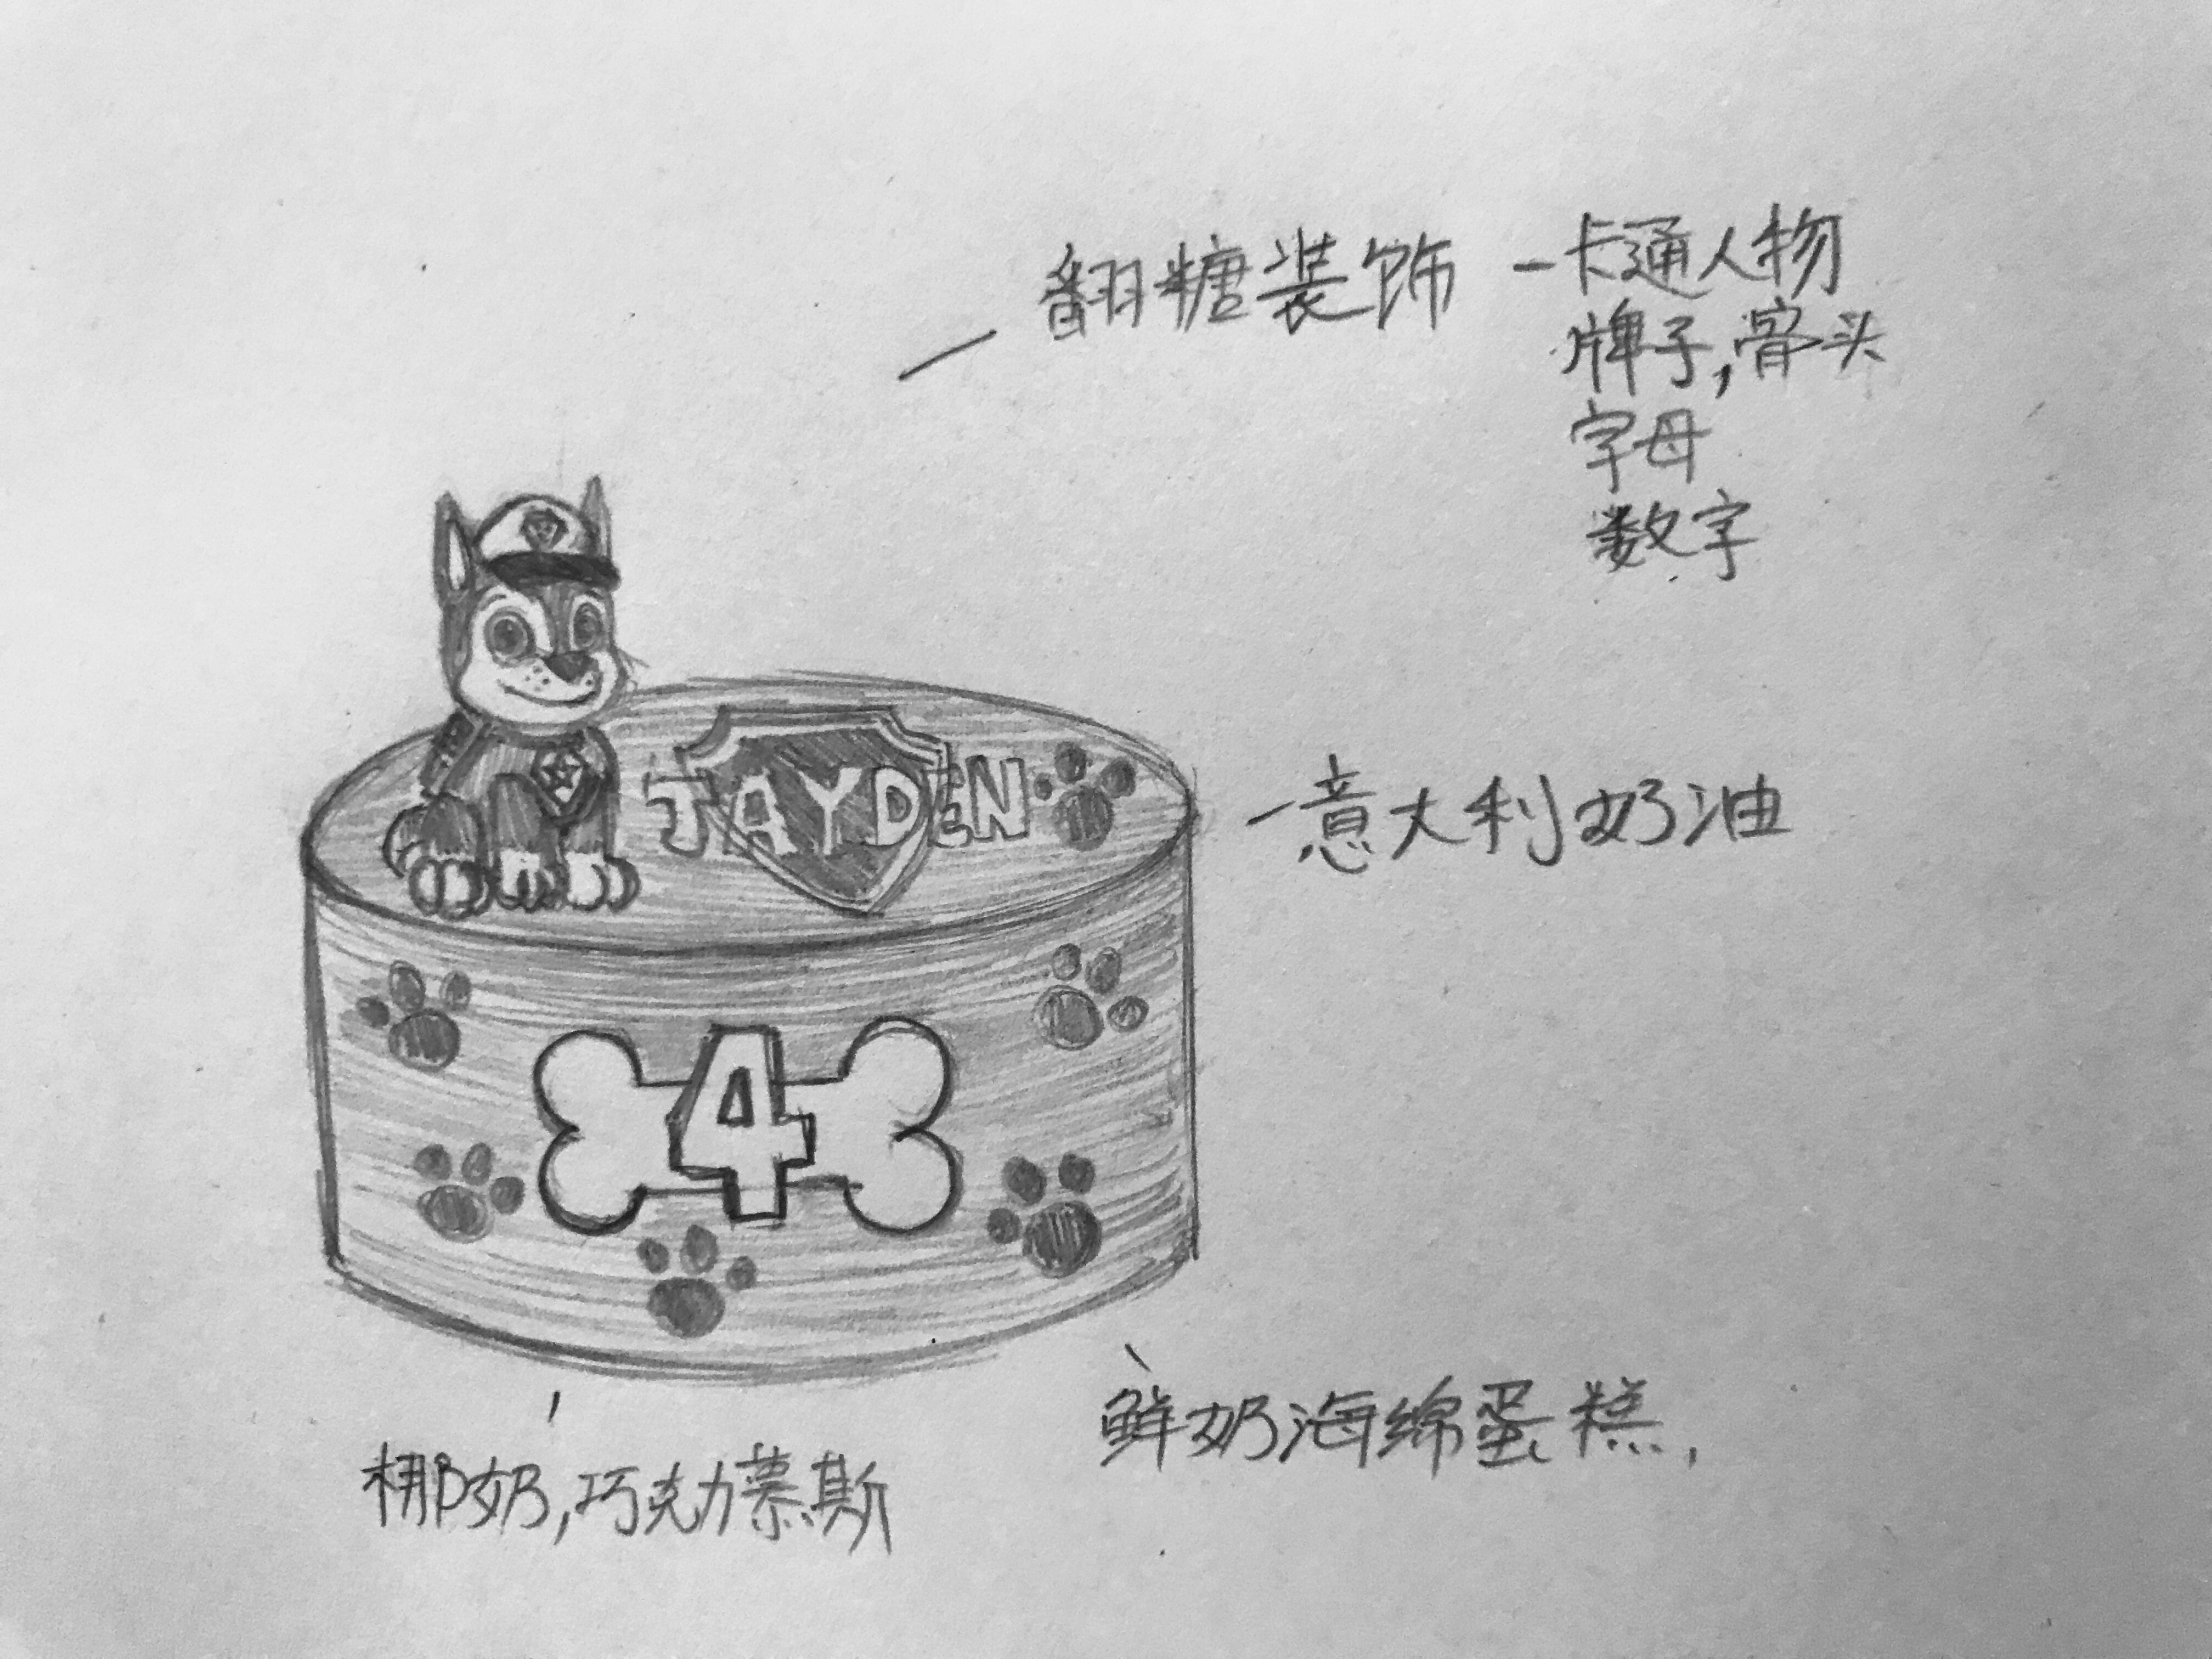 翻糖装饰 - 卡通人物
牌子,骨头
字母
数字
JAYDEN
意大利奶油
4
鲜奶海绵蛋糕.
椰奶,巧克力慕斯